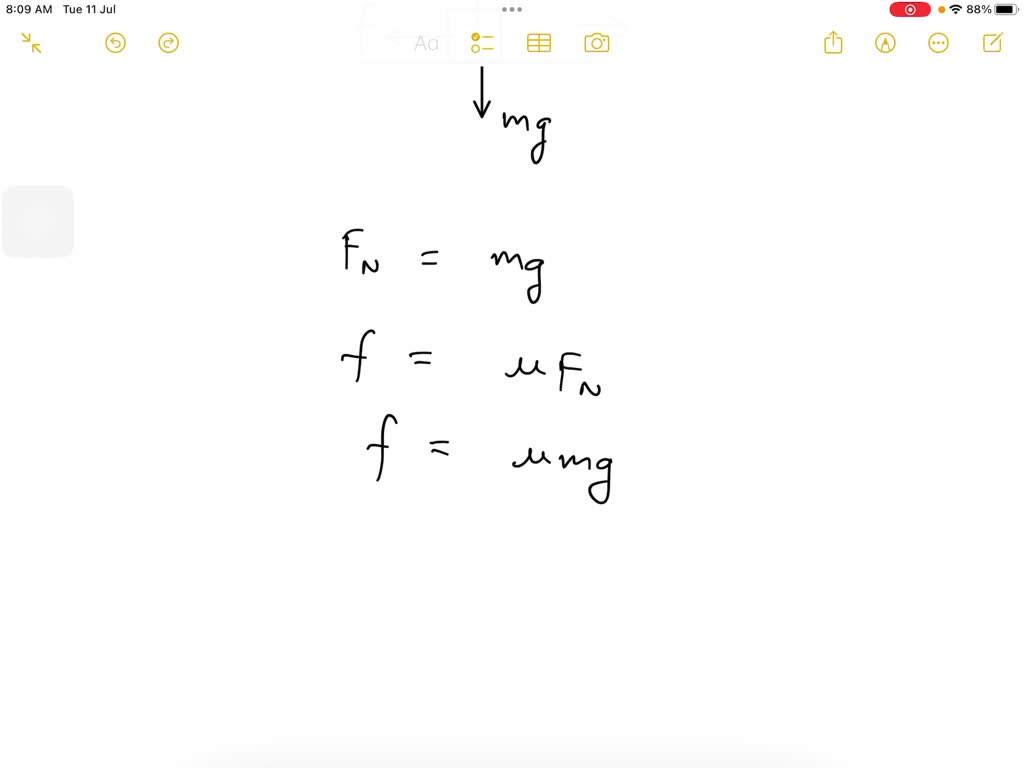 8:09 AM Tue 11 Jul
88%
Aa
mg
F_N = mg
f = μ F_N
f = μ mg